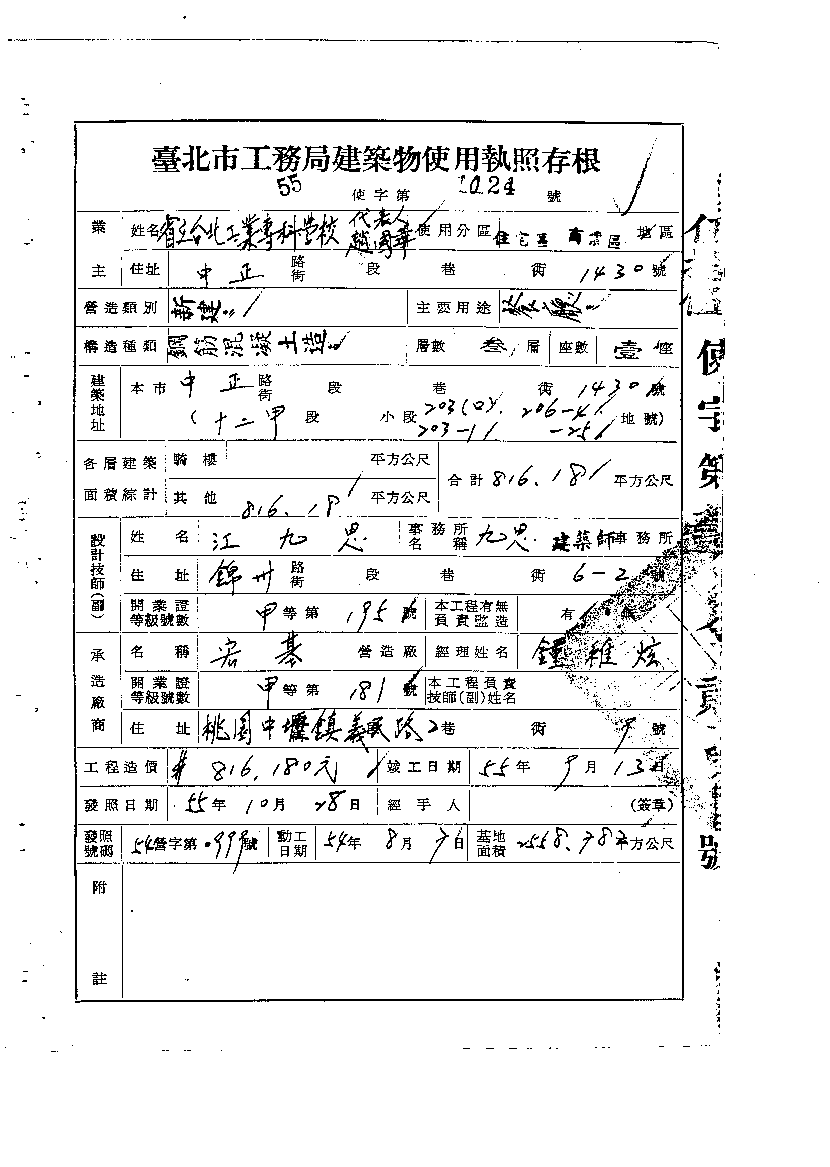 臺北市工務局建築物使用執照存根
55 使字第 1024 號
業主 姓名 省立台北工業專科學校 代表人 趙國華 使用分區 住宅區 商業區 地區
住址 中正 路街 段 巷 街 1430 號
營造類別 新建 主要用途
構造種類 鋼筋混凝土造 層數 叁 層 座數 壹 座
建築地址 本市 中正 路街 段 巷 街 1430 號
(十二甲 段 小段 203(0) 206-4 203-11 -25 地號)
各層建築面積綜計 騎樓 平方公尺 合計 816.18 平方公尺
其他 816.18 平方公尺
設計技師(副) 姓名 江九思 事務所名稱 九思 建築師事務所
住址 錦州 路街 段 巷 街 6-2 號
開業證等級號數 甲 等第 195 號 本工程有無負責監造 有
承造廠商 名稱 宏基 營造廠 經理姓名 鍾稚炫
開業證等級號數 甲 等第 181 號 本工程負責技師(副)姓名
住址 桃園中壢鎮義民路 2 巷 街 9 號
工程造價 # 816,180元 竣工日期 55年 9月 13日
發照日期 55年 10月 28日 經手人 (簽章)
發照號碼 54營字第 0999 號 動工日期 54年 8月 日 基地面積 平方公尺
附註
使字第 號